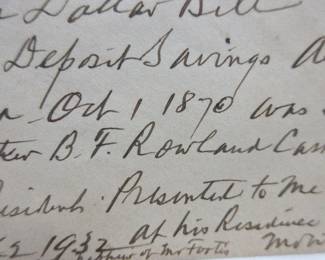 Dollar Bill
Deposit Savings
Oct 1 1870 was
B. F. Rowland
Presented to me
1932 at his Residence
of Mr Fortis